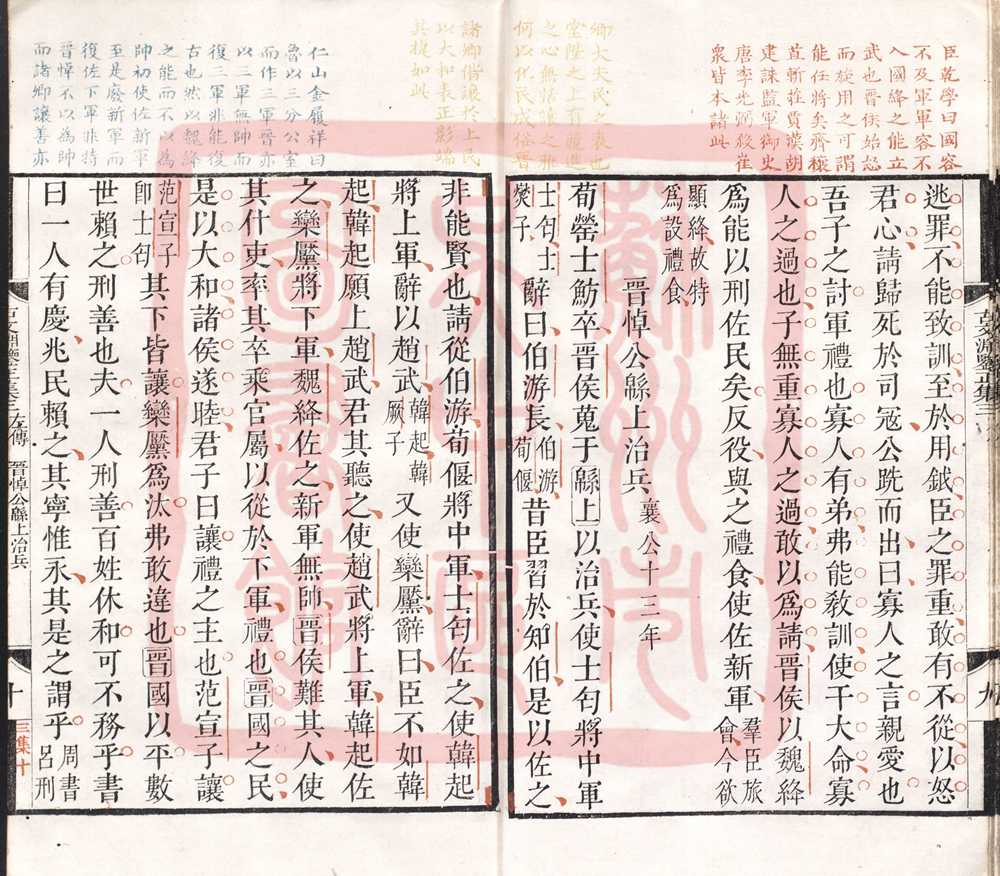 臣乾學曰國容
不及軍軍容不
入國絳之能立
武也晉侯始怒
而旋用之可謂
能任將矣齊穰
苴斬莊賈漢胡
建誅監軍御史
唐李光弼殺崔
衆皆本諸此
逃罪不能致訓至於用鉞臣之罪重敢有不從以怒
君心請歸死於司寇公跣而出曰寡人之言親愛也
吾子之討軍禮也寡人有弟弗能敎訓使干大命寡
人之過也子無重寡人之過敢以爲請晉侯以魏絳
爲能以刑佐民矣反役與之禮食使佐新軍羣臣旅會今欲
顯絳故特爲設禮食
晉悼公緜上治兵襄公十三年
荀罃士魴卒晉侯蒐于緜上以治兵使士匄將中軍
士匄士燮子辭曰伯游長伯游荀偃昔臣習於知伯是以佐之
卿大夫民之表也
堂陛之上有雍進
之心無爭讓之雅
何以化民成俗晉
諸卿偕讓於上民
以大和表正影端
其捷如此
非能賢也請從伯游荀偃將中軍士匄佐之使韓起
將上軍辭以趙武韓起韓厥子又使欒黶辭曰臣不如韓
起韓起願上趙武君其聽之使趙武將上軍韓起佐
之欒黶將下軍魏絳佐之新軍無帥晉侯難其人使
其什吏率其卒乘官屬以從於下軍禮也晉國之民
是以大和諸侯遂睦君子曰讓禮之主也范宣子讓
范宣子卽士匄其下皆讓欒黶爲汰弗敢違也晉國以平數
世賴之刑善也夫一人刑善百姓休和可不務乎書
曰一人有慶兆民賴之其寧惟永其是之謂乎周書呂刑
仁山金履祥曰
魯以三分公室
而作三軍晉亦
以三軍無帥而
復三軍非能復
古也然以魏絳
之能而不以爲
帥初使佐新軍
至是廢新軍而
復佐下軍非特
晉悼不以爲帥
而諸卿讓善亦
古文淵鑒正集三
九
左傳 晉悼公緜上治兵
十
三集十